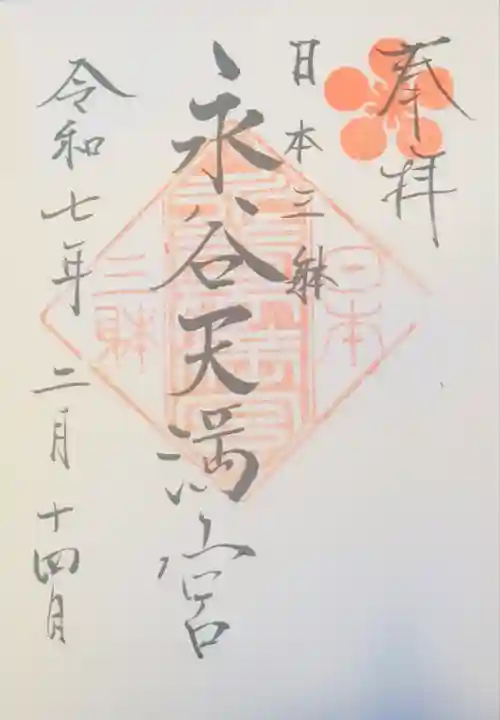 奉拝
日本三躰
永谷天満宮
令和七年二月十四月
日本
三躰